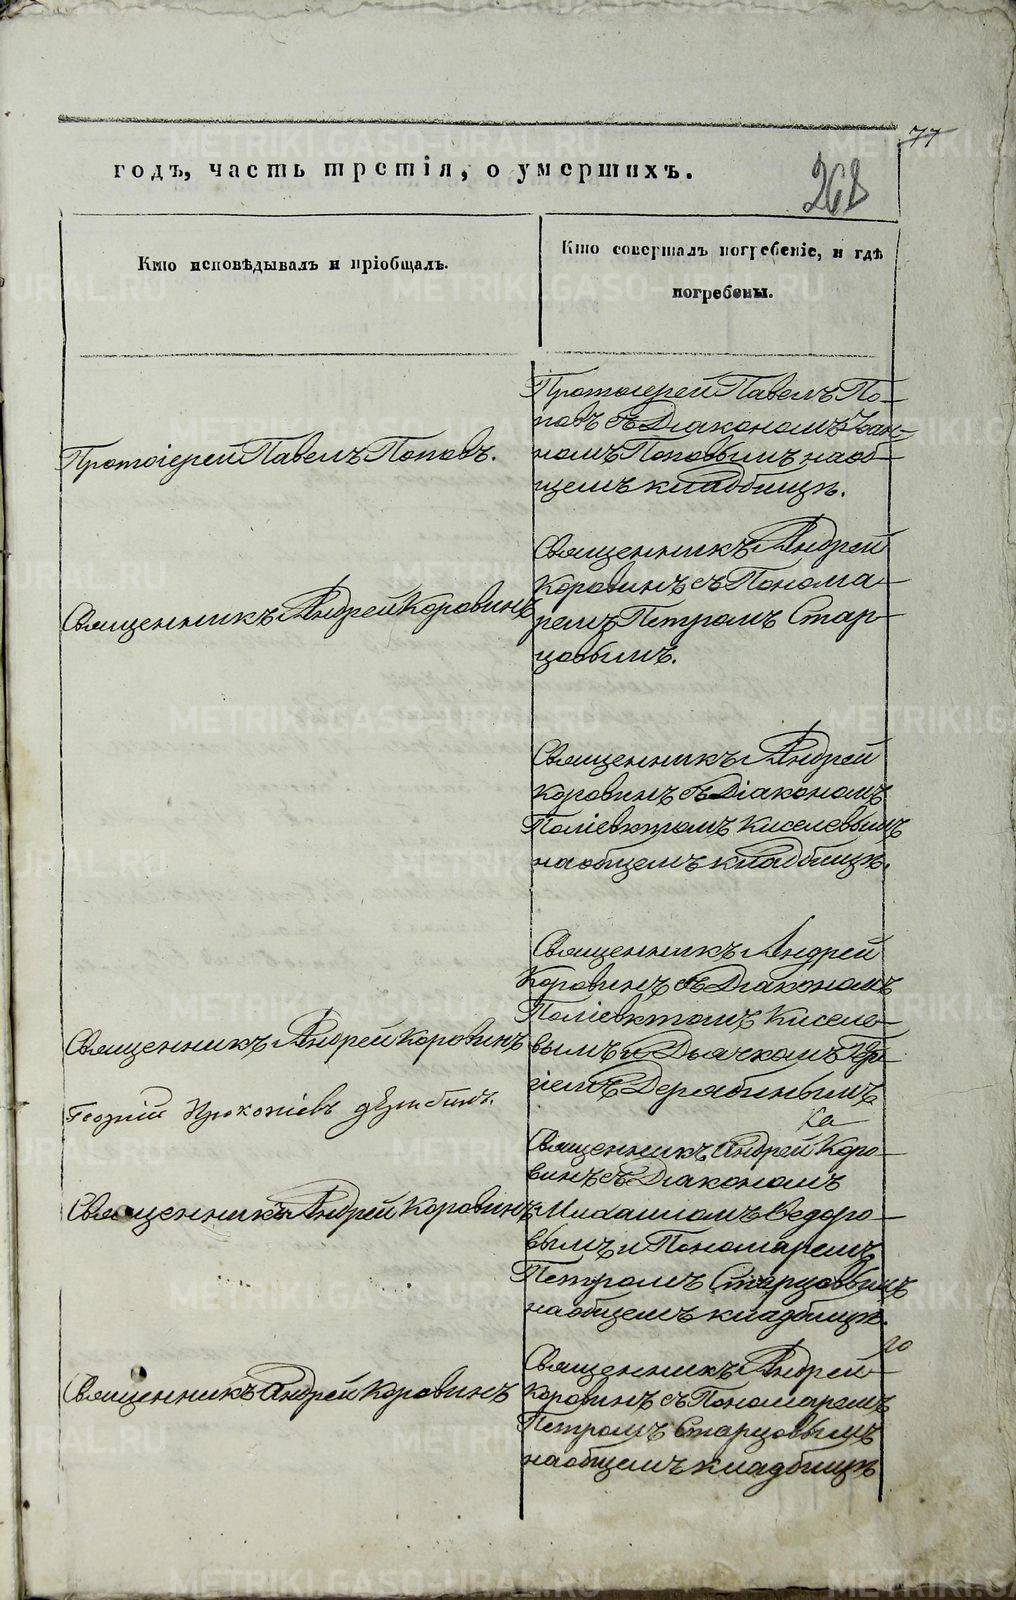 77
годъ, часть третія, о умершихъ.
268
Кто исповѣдывалъ и пріобщалъ.
Кто совершалъ погребеніе, и гдѣ
погребены.
Протоіерей Павелъ Поповъ.
Протоіерей Павелъ По-
повъ съ Діакономъ Іоан-
номъ Поповымъ на об-
щемъ кладбищѣ.
Священникъ Андрей Коровинъ
Священникъ Андрей
Коровинъ съ Понома-
ремъ Петромъ Стар-
цовымъ.
Священникъ Андрей
Коровинъ съ Діакономъ
Поліевктомъ Киселевымъ
на общемъ кладбищѣ.
Священникъ Андрей Коровинъ
Георгій Прокопіевъ
Священникъ Андрей
Коровинъ съ Діакономъ
Поліевктомъ Киселе-
вымъ и Дьячкомъ
Дерябинымъ
Священникъ Андрей Коровинъ
Священникъ Андрей Коро-
винъ съ Діакономъ
Михаиломъ Ѳедоро-
вымъ и Пономаремъ
Петромъ Старцовымъ
на общемъ кладбищѣ.
Священникъ Андрей Коровинъ
Священникъ Андрей
Коровинъ съ Пономаремъ
Петромъ Старцовымъ
на общемъ кладбищѣ
METRIKI.GASO-URAL.RU